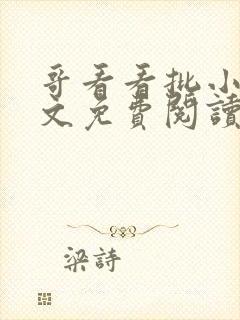 哥看看批小
文免費閱讀
梁詩